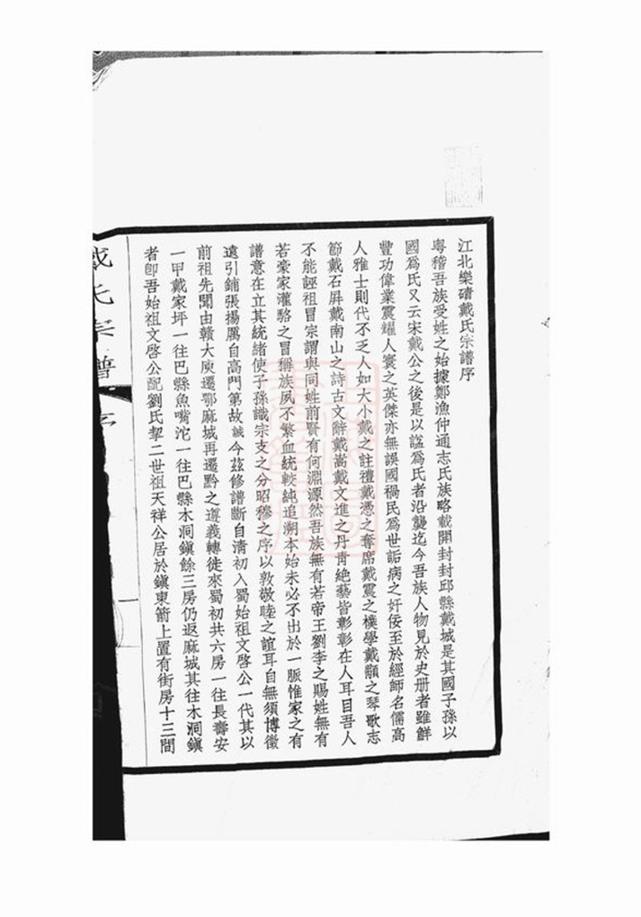 江北樂磧戴氏宗譜序
粵稽吾族受姓之始據鄭漁仲通志氏族略載開封封邱縣戴城是其國子孫以
國爲氏又云宋戴公之後是以諡爲氏者沿襲迄今吾族人物見於史册者雖鮮
豐功偉業震耀人寰之英傑亦無誤國禍民爲世詬病之奸佞至於經師名儒高
人雅士則代不乏人如大小戴之註禮戴憑之奪席戴震之樸學戴顒之琴歌志
節戴石屏戴南山之詩古文辭戴嵩戴文進之丹青絶藝皆彰彰在人耳目吾人
不能誣祖冒宗謂與同姓前賢有何淵源然吾族無有若帝王劉李之賜姓無有
若豪家灌駱之冒稱族夙不繁血統較純追溯本始未必不出於一脈惟家之有
譜意在立其統緒使子孫識宗支之分昭穆之序以敦敬睦之誼耳自無須博徵
遠引鋪張揚厲自高門第故誠今茲修譜斷自清初入蜀始祖文啓公一代其以
前祖先聞由贛大庾遷鄂麻城再遷黔之遵義轉徙來蜀初共六房一往長壽安
一甲戴家坪一往巴縣魚嘴沱一往巴縣木洞鎭餘三房仍返麻城其往木洞鎭
者卽吾始祖文啓公配劉氏挈二世祖天祥公居於鎭東箭上置有街房十三間
戴氏宗譜 序